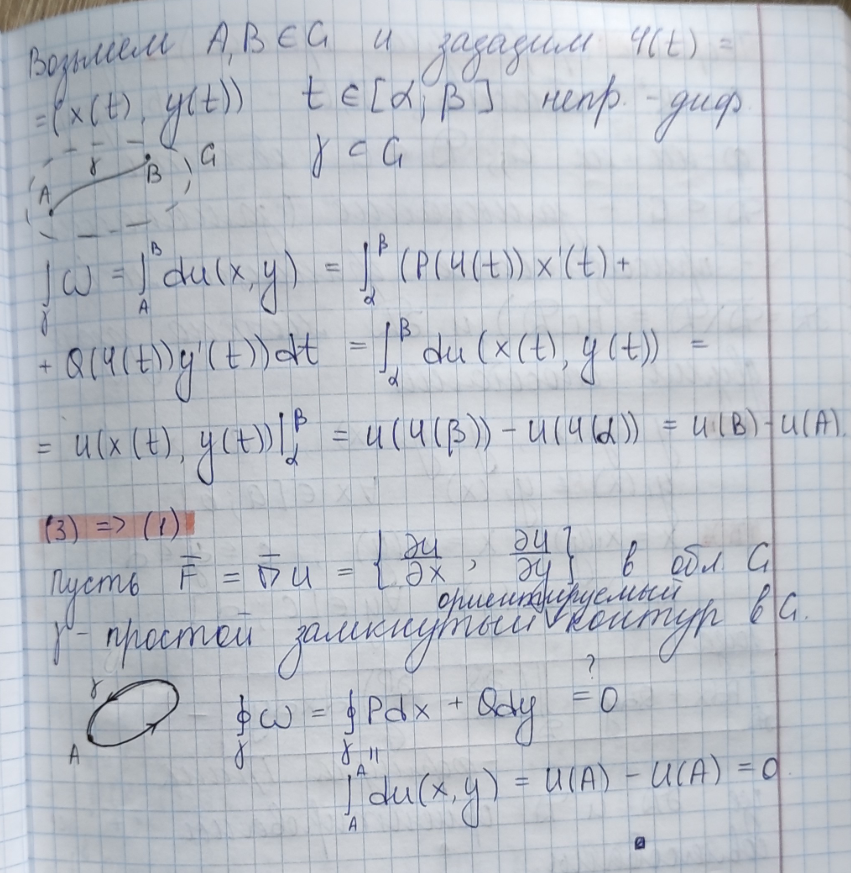 Возьмем A, B ∈ G и зададим φ(t) =
= (x(t), y(t)) t ∈ [α, β] непр.-диф
A γ B G γ ⊂ G
∫_γ ω = ∫_A^B du(x, y) = ∫_α^β (P(φ(t)) x'(t) +
+ Q(φ(t)) y'(t)) dt = ∫_α^β du(x(t), y(t)) =
= u(x(t), y(t))|_α^β = u(φ(β)) - u(φ(α)) = u(B) - u(A).
(3) => (1)
Пусть F̄ = ∇̄u = {∂u/∂x, ∂u/∂y} в обл G
ориентируемый
γ - простой замкнутый ∨ контур в G.
γ A - ∮_γ ω = ∮_γ Pdx + Qdy =^? 0
||
∫_A^A du(x, y) = u(A) - u(A) = 0